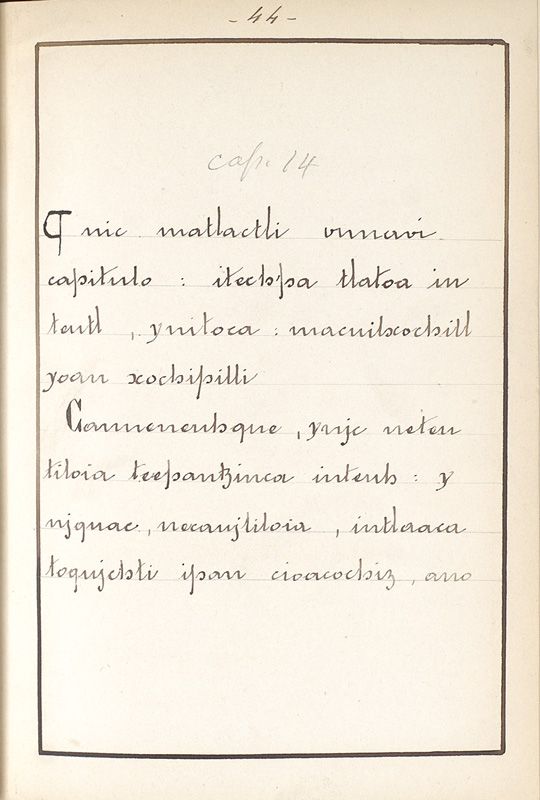 - 44 -
cap. 14
¶ nic matlactli vmnavi
capitulo : itechpa tlatoa in
teutl , ynitoca : macuilxochitl
yoan xochipilli
Canmenenhque , ynjc neteu
tiloia teepantzinca inteuh : y
njquac , necaujtiloia , intlaaca
toqujchti ipan cioacochiz , ano